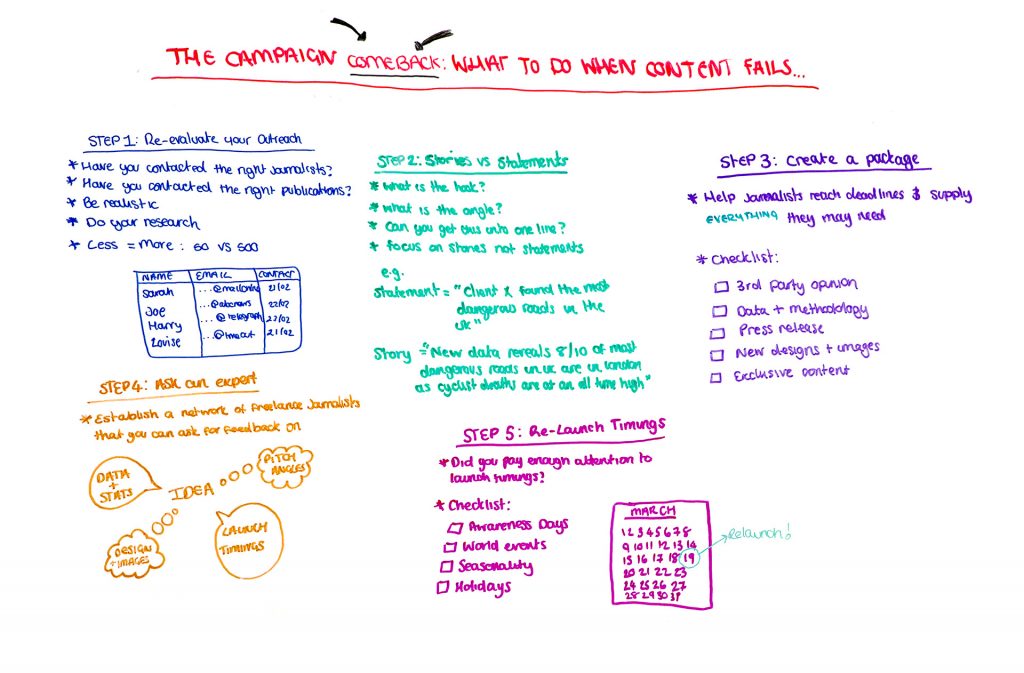 THE CAMPAIGN COMEBACK: WHAT TO DO WHEN CONTENT FAILS...
STEP 1: Re-evaluate your Outreach
* Have you contacted the right journalists?
* Have you contacted the right publications?
* Be realistic
* Do your research
* Less = More : 50 vs 500
NAME EMAIL CONTACT
Sarah ...@mailonline 21/02
Joe ...@abcnews 22/02
Harry ...@telegraph 22/02
Louise ...@timeout 21/02
STEP 2: Stories vs Statements
* What is the hook?
* What is the angle?
* Can you get this into one line?
* focus on stories not statements
e.g.
Statement = "Client X found the most
dangerous roads in the
UK"
Story = "New data reveals 8/10 of most
dangerous roads in UK are in London
as cyclist deaths are at an all time high"
STEP 3: Create a package
* Help journalists reach deadlines & supply
EVERYTHING they may need
* Checklist:
3rd party opinion
Data + methodology
Press release
New designs + images
Exclusive content
STEP 4: Ask an expert
* Establish a network of freelance journalists
that you can ask for feedback on
DATA
+
STATS
IDEA
PITCH
ANGLES
DESIGN
+ IMAGES
LAUNCH
TIMINGS
STEP 5: Re-Launch Timings
* Did you pay enough attention to
launch timings?
* Checklist:
Awareness Days
World events
Seasonality
Holidays
MARCH
1 2 3 4 5 6 7 8
9 10 11 12 13 14
15 16 17 18 19
20 21 22 23
24 25 26 27
28 29 30 31
Relaunch!